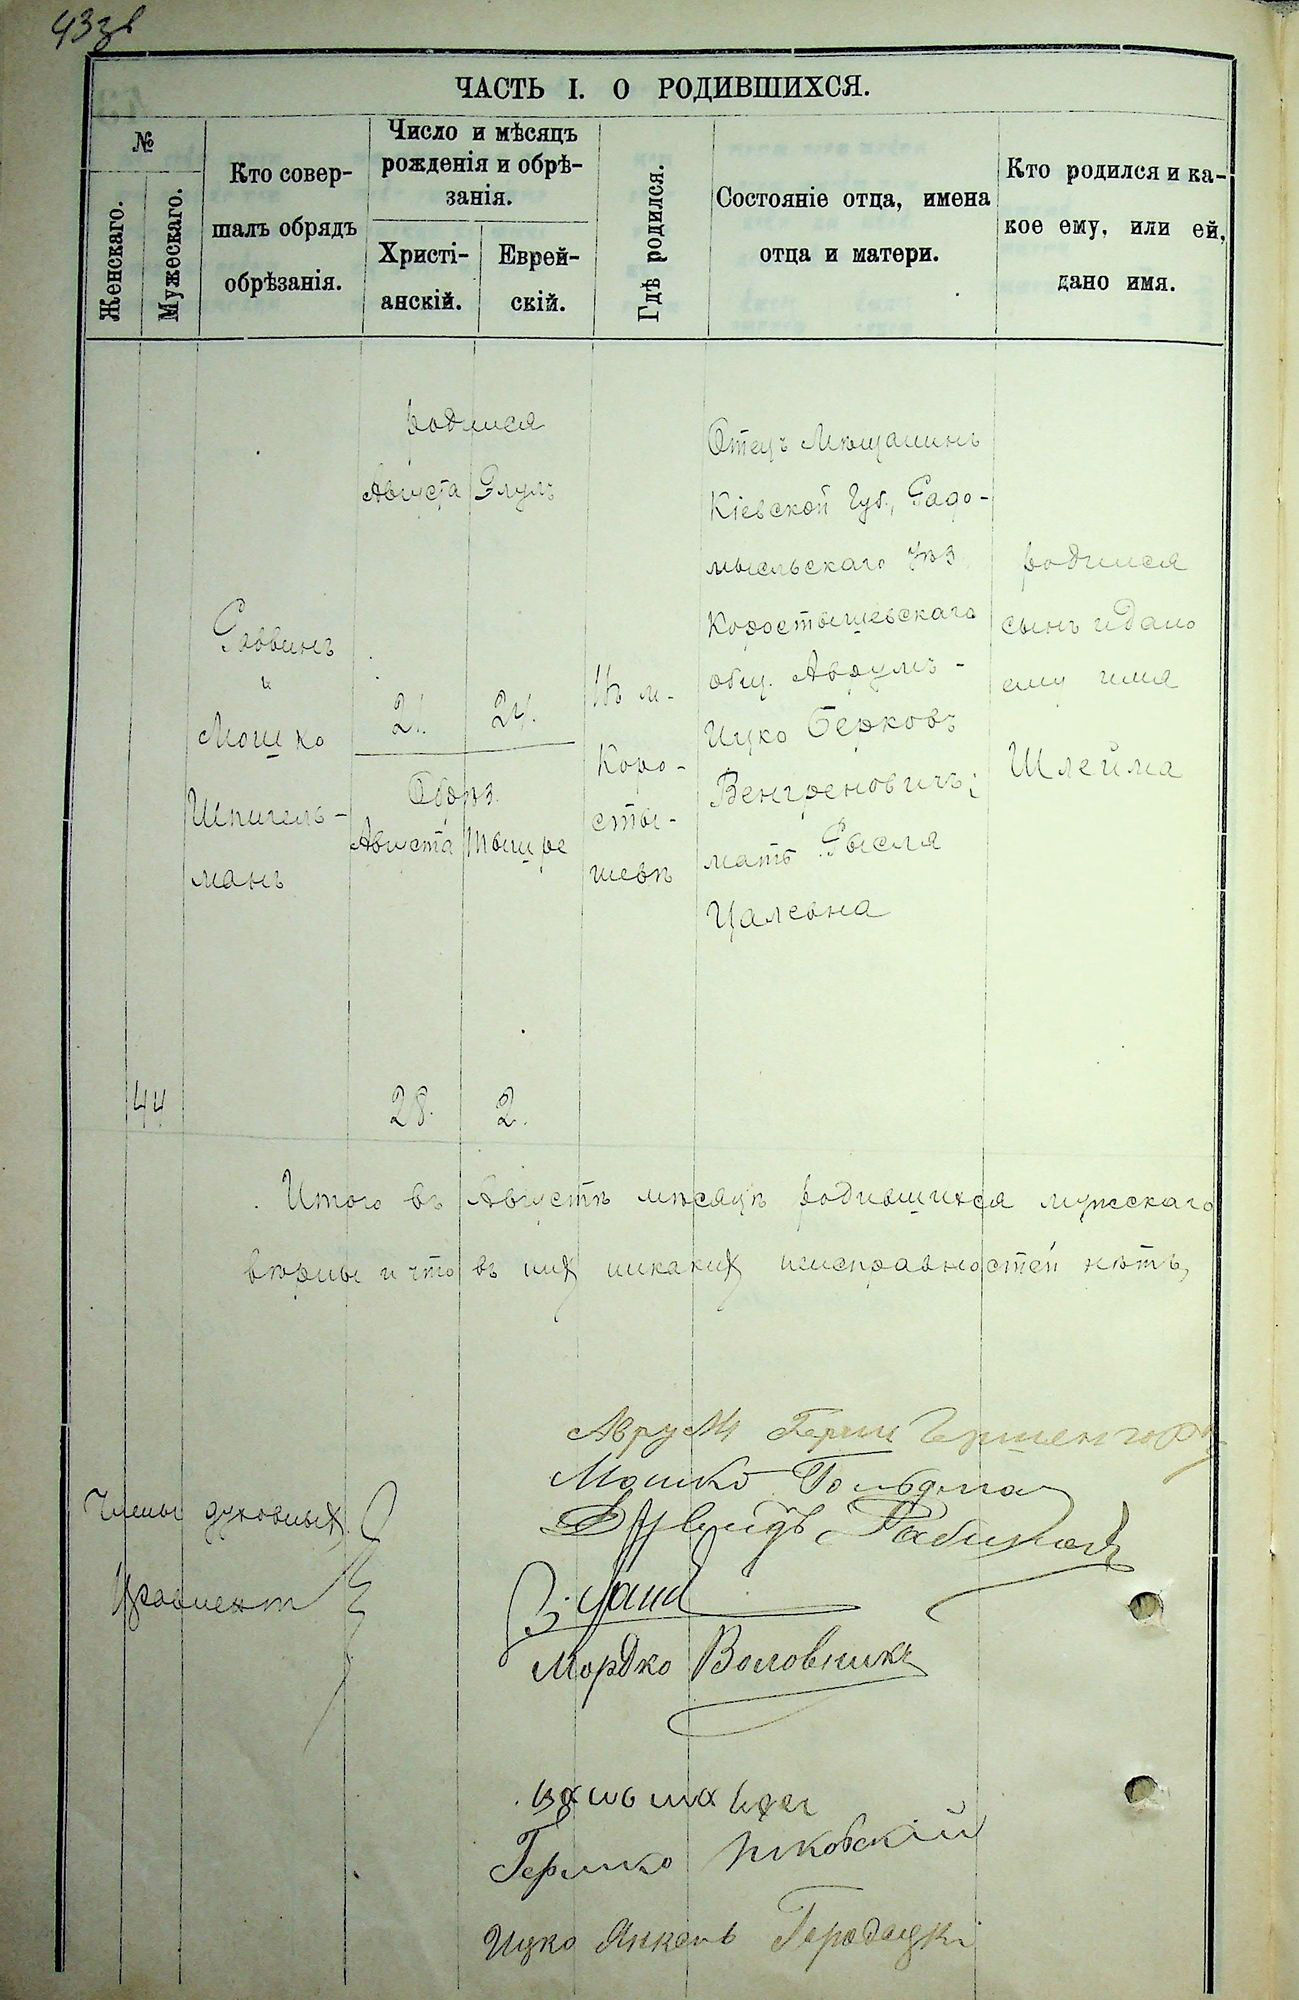 43зв
ЧАСТЬ I. О РОДИВШИХСЯ.
№
Женскаго.
Мужескаго.
Кто совер-
шалъ обрядъ
обрѣзанія.
Число и мѣсяцъ
рожденія и обрѣ-
занія.
Христі-
анскій.
Еврей-
скій.
Гдѣ родился.
Состояніе отца, имена
отца и матери.
Кто родился и ка-
кое ему, или ей,
дано имя.
44
Раввинъ
и
Мошко
Шпигель-
манъ
родился
Августа Элулъ
21. 24.
Обрѣз.
Августа Тишре
28. 2.
Въ м.
Коро-
сты-
шевѣ
Отецъ Мѣщанинъ
Кіевской Губ., Радо-
мысльскаго уѣз.
Коростышевскаго
общ. Аврумъ-
Ицко Берковъ
Венгреновичъ;
мать Рысля
Цалевна
родился
сынъ и дано
ему имя
Шлейма
Итого въ Августѣ мѣсяцѣ родившихся мужскаго
вѣрны и что въ них никаких неисправностей нѣтъ,
Члены духовных
Аврум Герш
Мошко
Мордко Воловникъ
Гершко
Ицко Янкель Городецкі